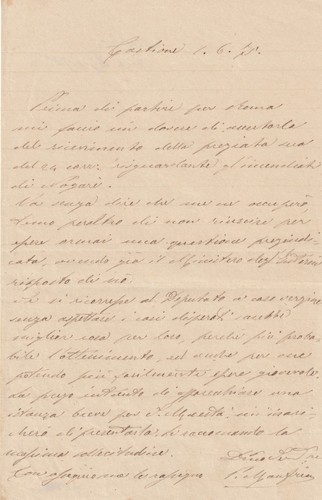 Castione 1. 6. 75.
Prima di partire per Roma
mi faccio un dovere di accertarla
del ricevimento della pregiata sua
del 24 corr. riguardante gl'incendiati
di Nogarè.
Va senza dire che me ne occuperò
temo peraltro di non riuscire per
essere ormai una questione pregiudi-
cata, avendo già il Ministero dell'Interno
risposto di no.
Se si ricorresse al Deputato a caso vergine
senza aspettare i casi disperati sarebbe
miglior cosa per loro, perchè più proba-
bile l'ottenimento, ed anche per me
potendo più facilmente opera giovevole.
La prego intanto di apparecchiare una
istanza breve per S. Maestà, mi incari-
cherò di presentarla, raccomando la
massima sollecitudine.
Con